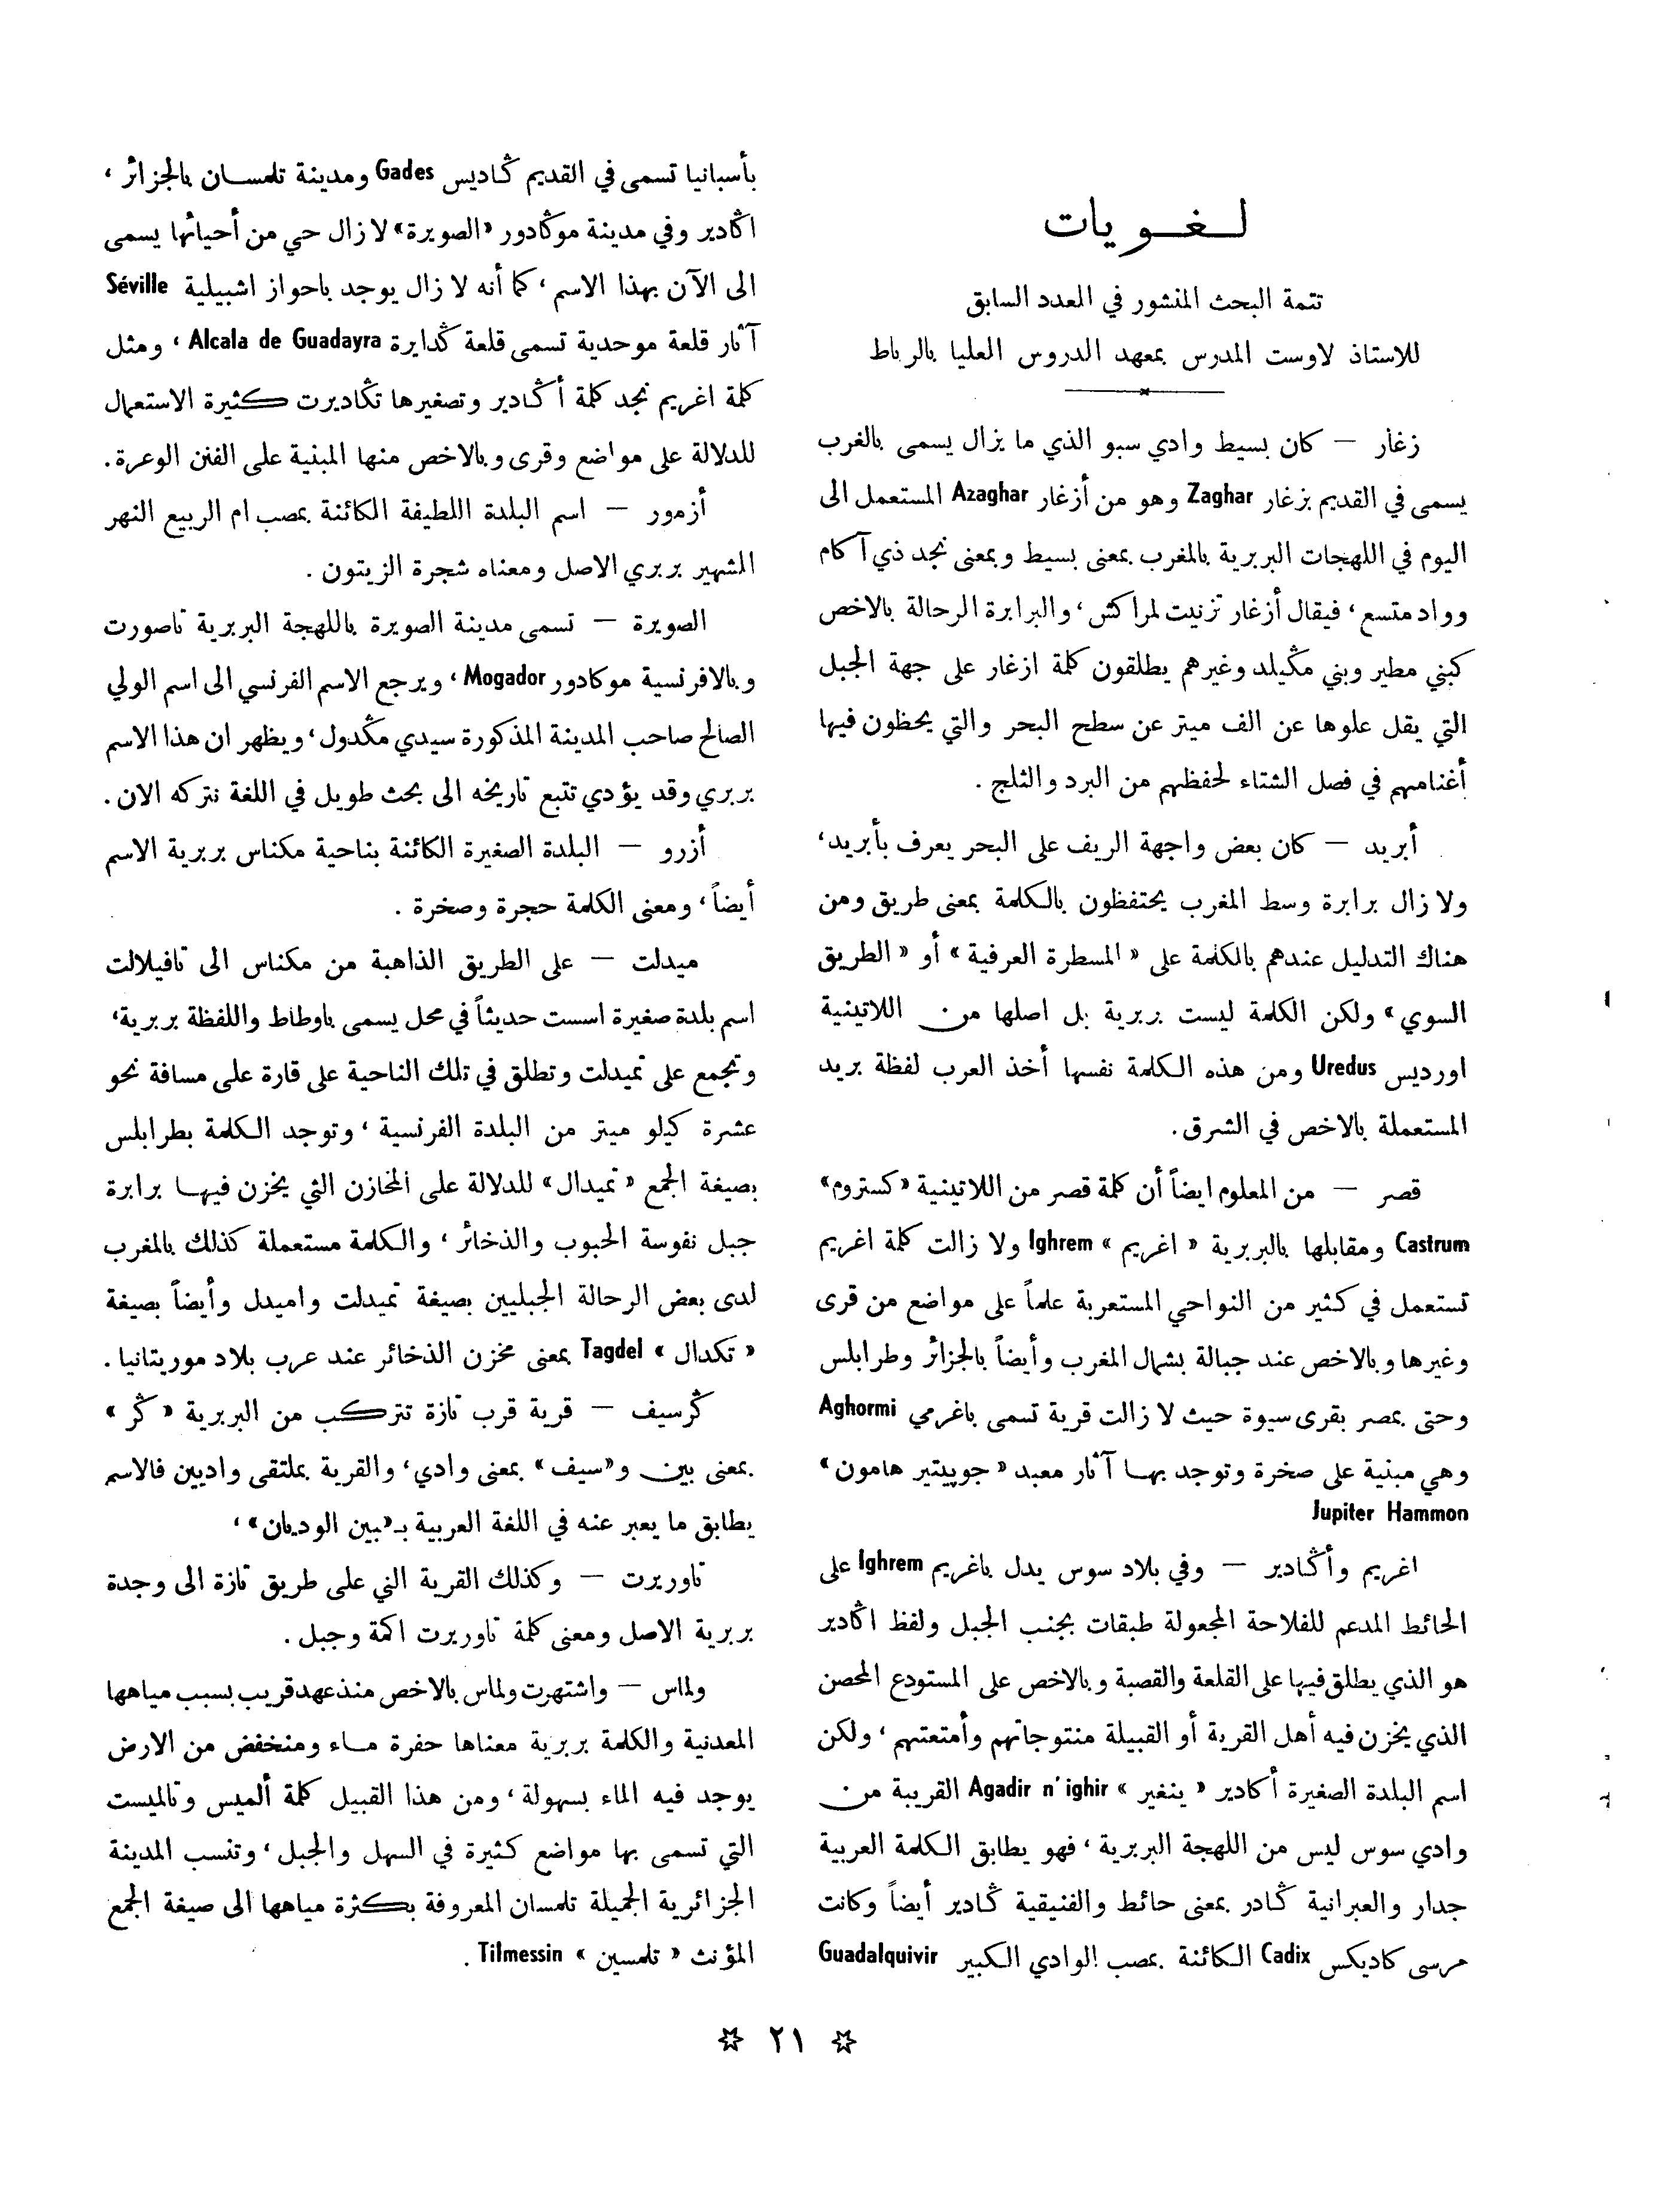 لـغـويات
تتمة البحث المنشور في العدد السابق
للاستاذ لاوست المدرس بمعهد الدروس العليا بالرباط
زغار — كان بسيط وادي سبو الذي ما يزال يسمى بالغرب
يسمى في القديم بزغار Zaghar وهو من أزغار Azaghar المستعمل الى
اليوم في اللهجات البربرية بالمغرب بمعنى بسيط وبمعنى نجد ذي آكام
وواد متسع، فيقال أزغار تزنيت لمراكش، والبرابرة الرحالة بالاخص
كبني مطير وبني مڭيلد وغيرهم يطلقون كلمة ازغار على جهة الجبل
التي يقل علوها عن الف ميتر عن سطح البحر والتي يحظون فيها
أغنامهم في فصل الشتاء لحفظهم من البرد والثلج .
أبريد — كان بعض واجهة الريف على البحر يعرف بأبريد،
ولا زال برابرة وسط المغرب يحتفظون بالكلمة بمعنى طريق ومن
هناك التدليل عندهم بالكلمة على « المسطرة العرفية » أو « الطريق
السوي » ولكن الكلمة ليست بربرية بل اصلها من اللاتينية
اورديس Uredus ومن هذه الكلمة نفسها أخذ العرب لفظة بريد
المستعملة بالاخص في الشرق.
قصر — من المعلوم ايضاً أن كلمة قصر من اللاتينية «كستروم»
Castrum ومقابلها بالبربرية « اغريم » Ighrem ولا زالت كلمة اغريم
تستعمل في كثير من النواحي المستعربة علماً على مواضع من قرى
وغيرها وبالاخص عند جبالة بشمال المغرب وأيضاً بالجزائر وطرابلس
وحتى بمصر بقرى سيوة حيث لا زالت قرية تسمى باغرمي Aghormi
وهي مبنية على صخرة وتوجد بها آثار معبد « جوپيتير هامون »
Jupiter Hammon
اغريم وأڭادير — وفي بلاد سوس يدل باغريم Ighrem على
الحائط المدعم للفلاحة المجعولة طبقات بجنب الجبل ولفظ اڭادير
هو الذي يطلق فيها على القلعة والقصبة وبالاخص على المستودع المحصن
الذي يخزن فيه أهل القرية أو القبيلة منتوجاتهم وأمتعتهم، ولكن
اسم البلدة الصغيرة أكادير « ينغير » Agadir n'ighir القريبة من
وادي سوس ليس من اللهجة البربرية، فهو يطابق الكلمة العربية
جدار والعبرانية ڭادر بمعنى حائط والفنيقية ڭادير أيضاً وكانت
مرسى كاديكس Cadix الكائنة بمصب الوادي الكبير Guadalquivir
بأسبانيا تسمى في القديم ڭاديس Gades ومدينة تلمسان بالجزائر،
اڭادير وفي مدينة موڭادور «الصويرة» لا زال حي من أحيائها يسمى
الى الآن بهذا الاسم، كما أنه لا زال يوجد باحواز اشبيلية Séville
آثار قلعة موحدية تسمى قلعة ڭدايرة Alcala de Guadayra، ومثل
كلمة اغريم نجد كلمة أڭادير وتصغيرها تڭاديرت كثيرة الاستعمال
للدلالة على مواضع وقرى وبالاخص منها المبنية على الفنن الوعرة.
أزمور — اسم البلدة اللطيفة الكائنة بمصب ام الربيع النهر
الشهير بربري الاصل ومعناه شجرة الزيتون .
الصويرة — تسمى مدينة الصويرة باللهجة البربرية تاصورت
وبالافرنسية موكادور Mogador، ويرجع الاسم الفرنسي الى اسم الولي
الصالح صاحب المدينة المذكورة سيدي مڭدول، ويظهر ان هذا الاسم
بربري وقد يؤدي تتبع تاريخه الى بحث طويل في اللغة نتركه الان.
أزرو — البلدة الصغيرة الكائنة بناحية مكناس بربرية الاسم
أيضاً، ومعنى الكلمة حجرة وصخرة .
ميدلت — على الطريق الذاهبة من مكناس الى تافيلالت
اسم بلدة صغيرة اسست حديثاً في محل يسمى باوطاط واللفظة بربرية،
وتجمع على تميدلت وتطلق في تلك الناحية على قارة على مسافة نحو
عشرة كيلو ميتر من البلدة الفرنسية، وتوجد الكلمة بطرابلس
بصيغة الجمع « تميدال» للدلالة على المخازن التي يخزن فيها برابرة
جبل نفوسة الحبوب والذخائر، والكلمة مستعملة كذلك بالمغرب
لدى بعض الرحالة الجبليين بصيغة تميدلت واميدل وأيضاً بصيغة
« تكدال » Tagdel بمعنى مخزن الذخائر عند عرب بلاد موريتانيا .
ڭرسيف — قرية قرب تازة تتركب من البربرية « ڭر »
بمعنى بين و«سيف» بمعنى وادي، والقرية بملتقى واديين فالاسم
يطابق ما يعبر عنه في اللغة العربية بـ«بين الوديان»،
تاوريرت — وكذلك القرية التي على طريق تازة الى وجدة
بربرية الاصل ومعنى كلمة تاوريرت اكمة وجبل.
ولماس — واشتهرت ولماس بالاخص منذ عهد قريب بسبب مياهها
المعدنية والكلمة بربرية معناها حفرة ماء ومنخفض من الارض
يوجد فيه الماء بسهولة، ومن هذا القبيل كلمة ألميس وتالميست
التي تسمى بها مواضع كثيرة في السهل والجبل، وتنسب المدينة
الجزائرية الجميلة تلمسان المعروفة بكثرة مياهها الى صيغة الجمع
المؤنث « تلمسين » Tilmessin .
☆ ٢١ ☆